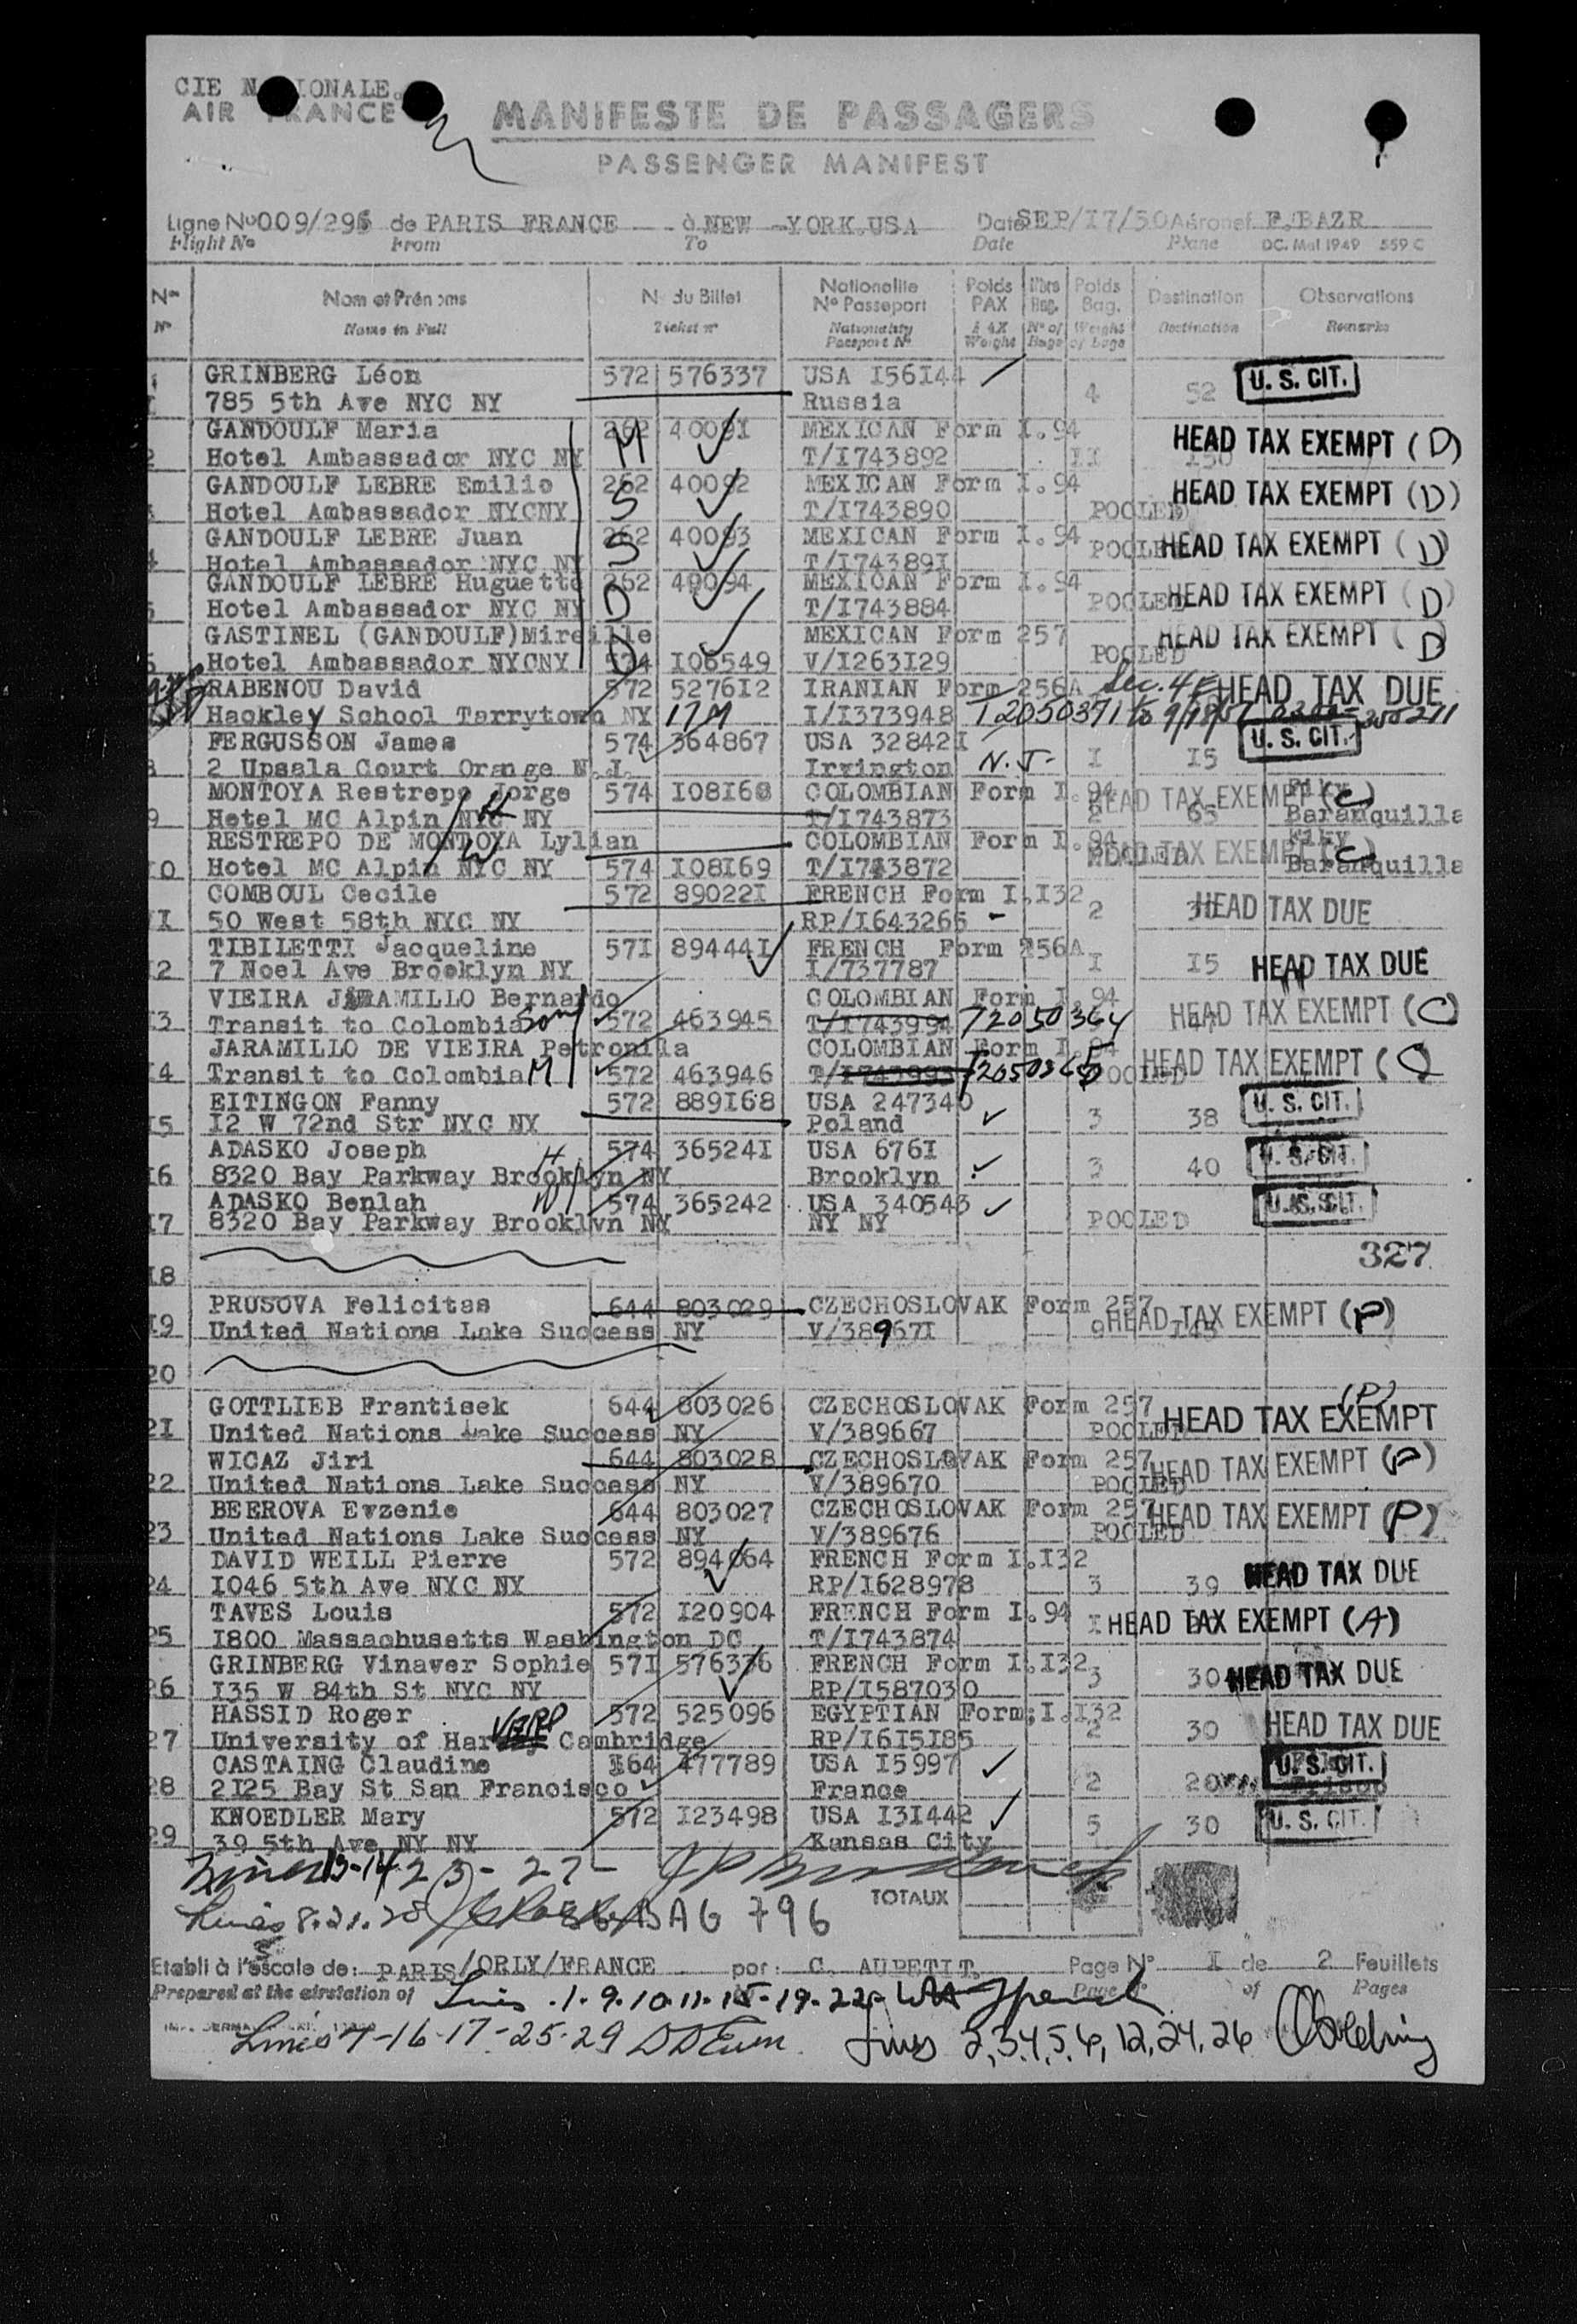 CIE N IONALE
AIR FRANCE
MANIFESTE DE PASSAGERS
PASSENGER MANIFEST
Ligne No 009/296 de PARIS FRANCE à NEW -YORK.USA Date SEP/I7/50 Aéronef F.BAZR
Flight No From To Date Plane OC. Mal 1949 559 C
Nos Nom et Prénoms No du Billet Nationalité No Passeport Poids PAX Nbre Bag. Poids Bag. Destination Observations
No Name in Full Ticket no Nationality Passport No PAX Weight No of Bags Weight of bags Destination Remarks
GRINBERG Léon 572 576337 USA I56I44 U. S. CIT.
785 5th Ave NYC NY Russia 4 52
GANDOULF Maria M 262 4009I MEXICAN Form I.94 HEAD TAX EXEMPT (D)
2 Hotel Ambassador NYC NY T/I743892 II
GANDOULF LEBRE Emilio S 262 40092 MEXICAN Form I.94 HEAD TAX EXEMPT (D)
Hotel Ambassador NYCNY T/I743890 POOLED
GANDOULF LEBRE Juan S 262 40093 MEXICAN Form I.94 HEAD TAX EXEMPT (D)
4 Hotel Ambassador NYC NY T/I74389I POOLED
GANDOULF LEBRE Huguette D 262 40094 MEXICAN Form I.94 HEAD TAX EXEMPT (D)
5 Hotel Ambassador NYC NY T/I743884 POOLED
GASTINEL (GANDOULF)Mireille D MEXICAN Form 257 HEAD TAX EXEMPT (D)
Hotel Ambassador NYCNY 574 I06549 V/I263I29 POOLED
RABENOU David 572 5276I2 IRANIAN Form 256A Sec. 4E HEAD TAX DUE
Hackley School Tarrytown NY 17M I/I373948 T2050371 to 9/18/51
FERGUSSON James 574 364867 USA 32842I U. S. CIT.
8 2 Upsala Court Orange N.J. Irvington N.J. I I5
MONTOYA Restrepo Jorge H 574 I08I68 COLOMBIAN Form I.94 HEAD TAX EXEMPT (C)
9 Hotel MC Alpin NYC NY T/I743873 2 65 Baranquilla
RESTREPO DE MONTOYA Lylian W COLOMBIAN Form I.94 HEAD TAX EXEMPT (C)
I0 Hotel MC Alpin NYC NY 574 I08I69 T/I743872 POOLED Baranquilla
COMBOUL Cecile 572 89022I FRENCH Form I.I32 HEAD TAX DUE
II 50 West 58th NYC NY RP/I643265 - 2
TIBILETTI Jacqueline 57I 89444I FRENCH Form 256A HEAD TAX DUE
I2 7 Noel Ave Brooklyn NY I/737787 I I5
VIEIRA JARAMILLO Bernardo COLOMBIAN Form I.94 HEAD TAX EXEMPT (C)
I3 Transit to Colombia Son 572 463945 T/I743994 T2050364
JARAMILLO DE VIEIRA Petronilla COLOMBIAN Form I.94 HEAD TAX EXEMPT (C)
I4 Transit to Colombia M 572 463946 T/I743993 T2050365 POOLED
EITINGON Fanny 572 889I68 USA 247340 U. S. CIT.
I5 I2 W 72nd Str NYC NY Poland 3 38
ADASKO Joseph H 574 36524I USA 676I U. S. CIT.
I6 8320 Bay Parkway Brooklyn NY Brooklyn 3 40
ADASKO Benlah W 574 365242 USA 340543 U. S. CIT.
I7 8320 Bay Parkway Brooklyn NY NY NY POOLED
327
I8
PRUSOVA Felicitas 644 803029 CZECHOSLOVAK Form 257 HEAD TAX EXEMPT (P)
I9 United Nations Lake Success NY V/38967I 9
20
GOTTLIEB Frantisek 644 803026 CZECHOSLOVAK Form 257 (P) HEAD TAX EXEMPT
2I United Nations Lake Success NY V/389667 POOLED
WICAZ Jiri 644 803028 CZECHOSLOVAK Form 257 HEAD TAX EXEMPT (P)
22 United Nations Lake Success NY V/389670 POOLED
BEEROVA Evzenie 644 803027 CZECHOSLOVAK Form 257 HEAD TAX EXEMPT (P)
23 United Nations Lake Success NY V/389676 POOLED
DAVID WEILL Pierre 572 894064 FRENCH Form I.I32 HEAD TAX DUE
24 I046 5th Ave NYC NY RP/I628978 3 39
TAVES Louis 572 I20904 FRENCH Form I.94 HEAD TAX EXEMPT (A)
25 I800 Massachusetts Washington DC T/I743874 I
GRINBERG Vinaver Sophie 57I 576336 FRENCH Form I.I32 HEAD TAX DUE
26 I35 W 84th St NYC NY RP/I587030 3 30
HASSID Roger 572 525096 EGYPTIAN Form;I.I32 HEAD TAX DUE
27 University of Harvard Cambridge RP/I6I5I85 2 30
CASTAING Claudine I64 477789 USA I5997 U. S. CIT.
28 2I25 Bay St San Francisco France 2 20
KNOEDLER Mary 572 I23498 USA I3I442 U. S. CIT.
29 39 5th Ave NY NY Kansas City 5 30
Lines 13-14-23-27-
Lines 8.21.28 BAG 796 TOTAUX
Etabli à l'escale de: PARIS/ORLY/FRANCE par: C. AUPETIT. Page No I de 2 Feuillets
Prepared at the airstation of Page No of Pages
Lines .1.9.10.11.15-19-22-
Lines 7-16-17-25-29 Lines 2,3,4,5,6,12,24,26